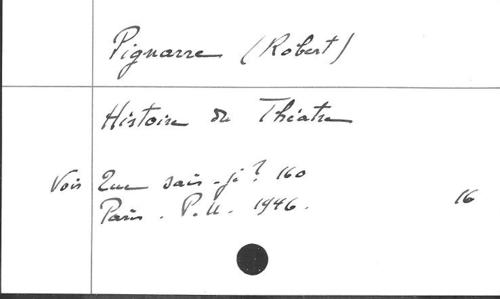 Pignarre (Robert)
Histoire du Théatre
Voir Que sais-je? 160
Paris. P.U. 1946. 16